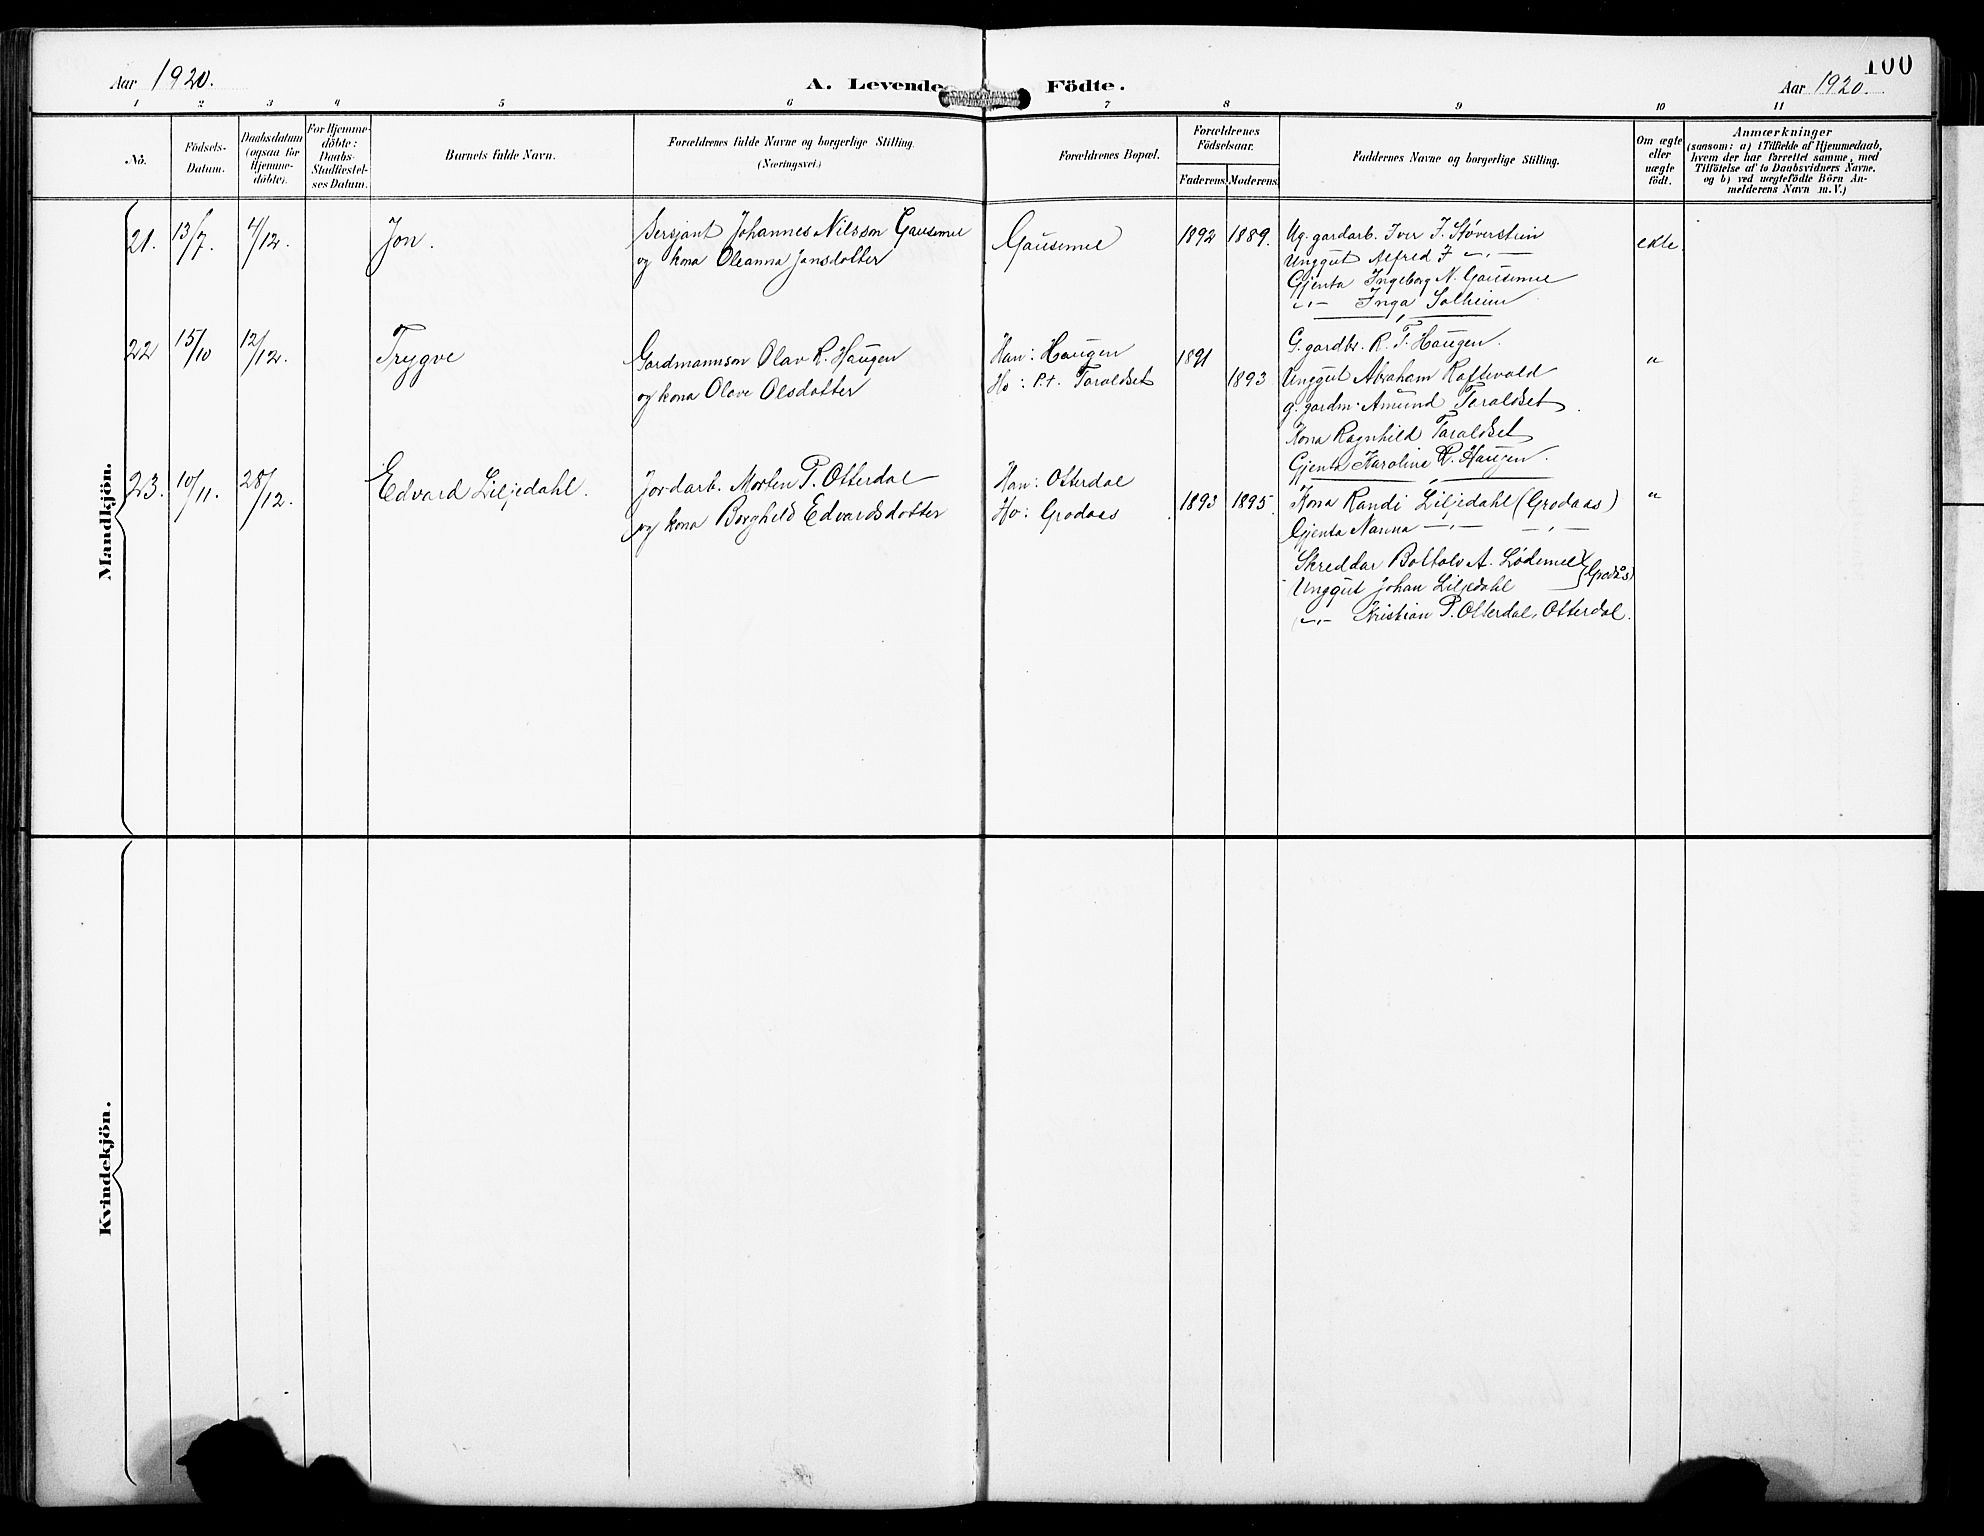 100
Aar 1920.
A. Levende Födte.
Aar 1920.
1 2 3 4 5 6 7 8 9 10 11
No.
Födsels-
Datum.
Daabsdatum
(ogsaa for
Hjemme-
döbte).
For Hjemme-
döbte:
Daabs-
Stadfæstel-
ses Datum.
Barnets fulde Navn.
Forældrenes fulde Navne og borgerlige Stilling.
(Næringsvei.)
Forældrenes Bopæl.
Forældrenes
Födselsaar.
Faderens.
Moderens.
Faddernes Navne og borgerlige Stilling.
Om ægte
eller
uægte
födt.
Anmærkninger
(saasom: a) i Tilfælde af Hjemmedaab,
hvem der har forrettet samme, med
Tilföielse af to Daabsvidners Navne.
og b) ved uægtefödte Börn An-
melderens Navn m. V.)
Mandkjön.
21. 13/7. 4/12. Jon.
Sersjant Johannes Nilsson Gausemel
og kona Oleanna Jonsdotter
Gausemel
1892 1889.
Ug. gardarb. Iver J. Støverstein
Unggut Alfred J. -„-
Gjenta Ingeborg N. Gausemel
-„- Inga Solheim
ekte.
22 15/10 12/12. Trygve
Gardmannson Olav R. Haugen
og kona Olave Olsdotter
Han: Haugen
Ho: p.t. Taraldset
1891
1893
G. gardbr. R. T. Haugen.
Unggut Abraham Raftevold
g. gardm. Amund Taraldset.
Kona Ragnhild Taraldset
Gjenta Karoline R. Haugen.
"
23. 10/11. 28/12. Edvard Liljedahl.
Jordarb. Morten P. Otterdal
og kona Borghild Edvardsdotter
Han: Otterdal
Ho: Grodaas
1893 1895.
Kona Randi Liljedahl (Grodaas)
Gjenta Nanna -„- -„-
Skreddar Bottolv A. Lødemel
Unggut Johan Liljedahl } (Grodås)
-„- Kristian P. Otterdal, Otterdal.
"
Kvindekjön.